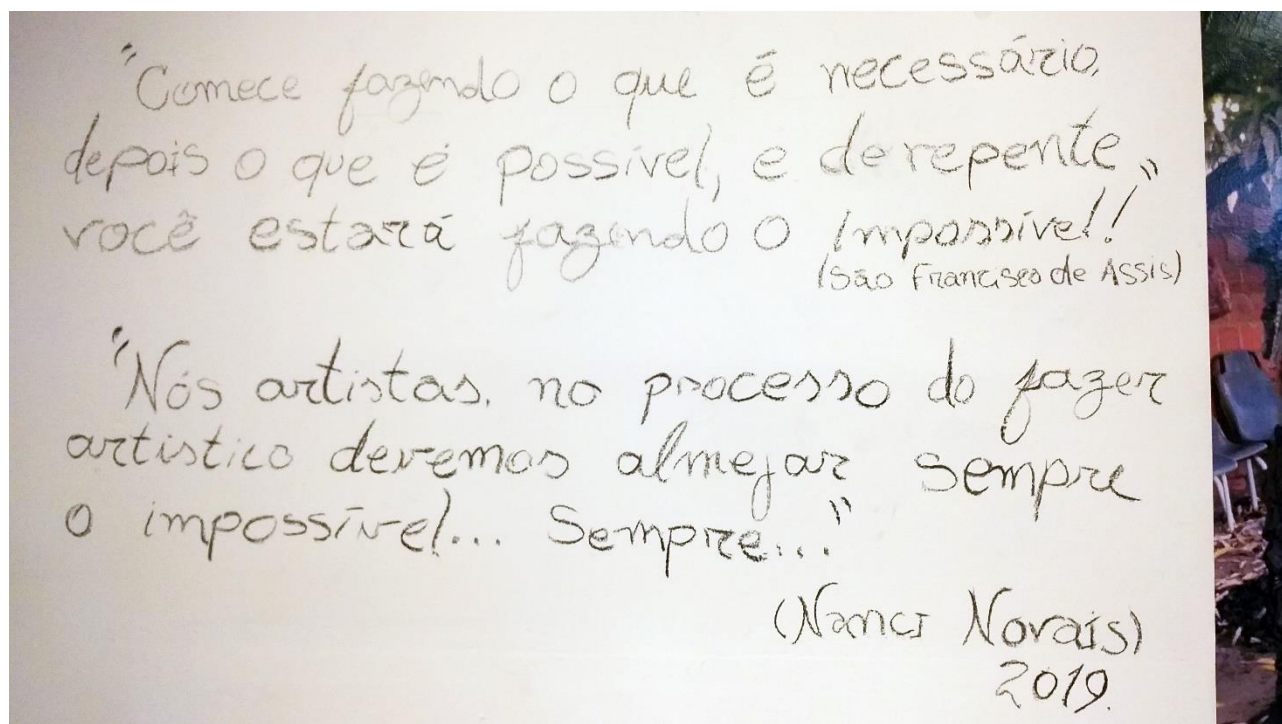 "Comece fazendo o que é necessário,
depois o que é possível, e derepente
você estará fazendo o Impossível!"
(São Francisco de Assis)
"Nós artistas, no processo do fazer
artistico devemos almejar sempre
o impossível... Sempre..."
(Nanci Novais)
2019.